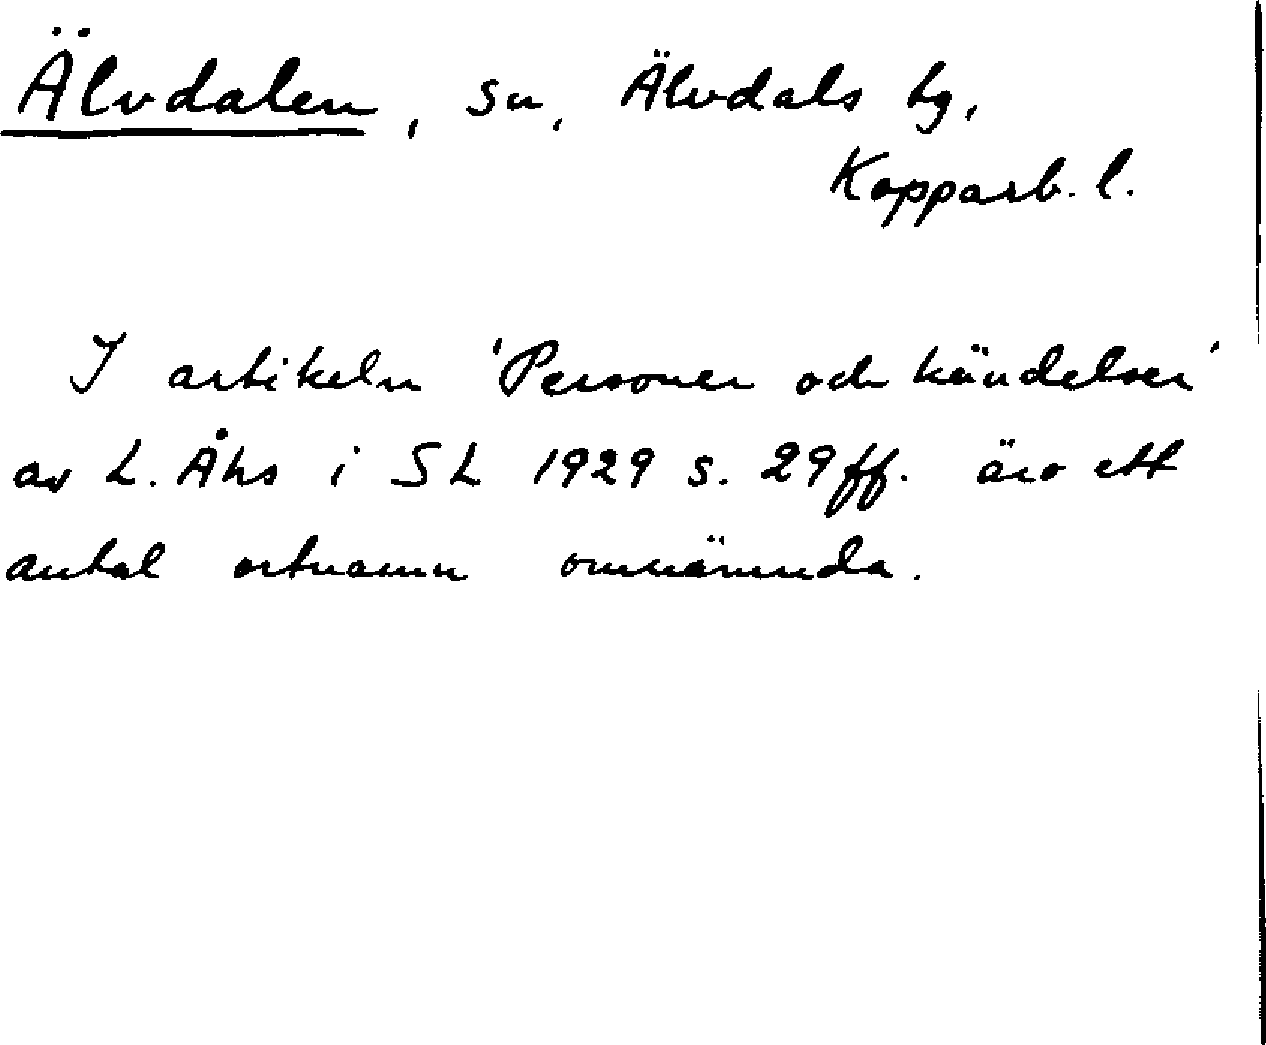 Älvdalen, sn, Älvdals tg,
Kopparb. l.
I artikeln 'Personer och händelser'
av L. Åhs i SL 1929 s. 29 ff. äro ett
antal ortnamn omnämnda.